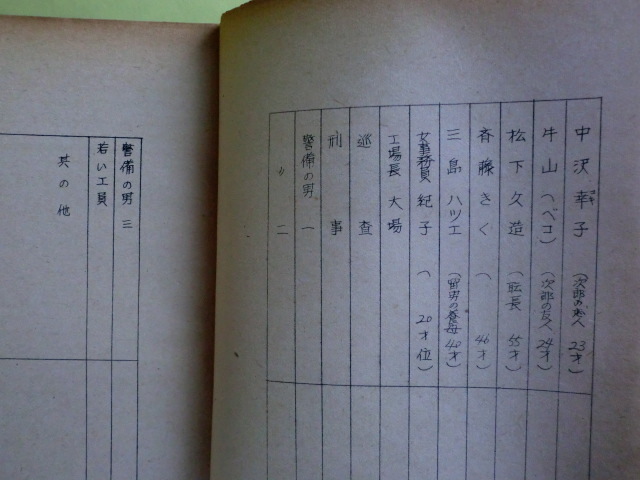 中沢幸子 (次郎の恋人 23才)
牛山 (ベコ) (次郎の友人 24才)
松下久造 (職長 55才)
斉藤きく ( 46才)
三島ハツエ (節男の養母 40才)
女事務員 紀子 ( 20才位)
工場長 大場
巡査
刑事
警備の男 一
〃 二
警備の男 三
若い工員
其の他